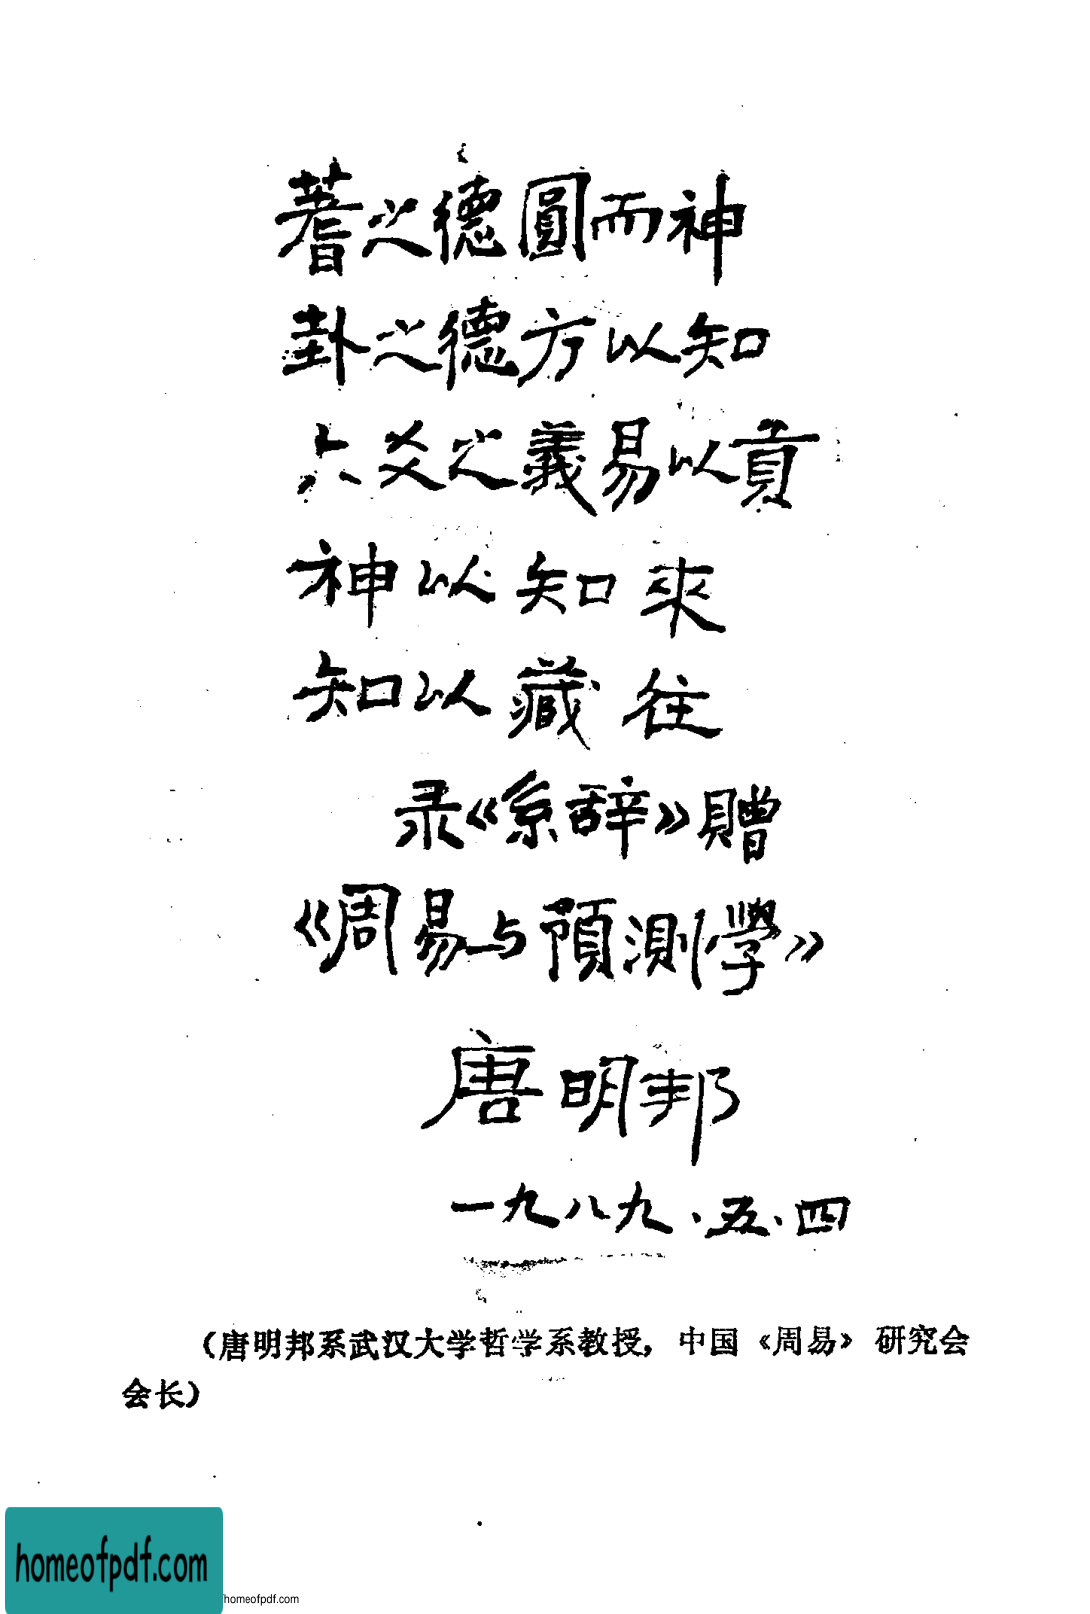 蓍之德圓而神
卦之德方以知
六爻之義易以貢
神以知來
知以藏往
录《系辞》贈
《周易与預測學》
唐明邦
一九八九·五·四
(唐明邦系武汉大学哲学系教授，中国《周易》研究会
会长)
homeofpdf.com
homeofpdf.com